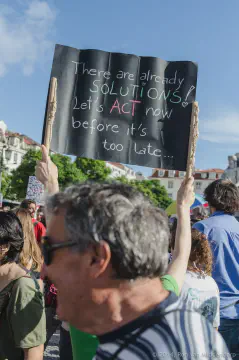 There are already
SOLUTIONS!
Let's ACT now
before it's
too late...